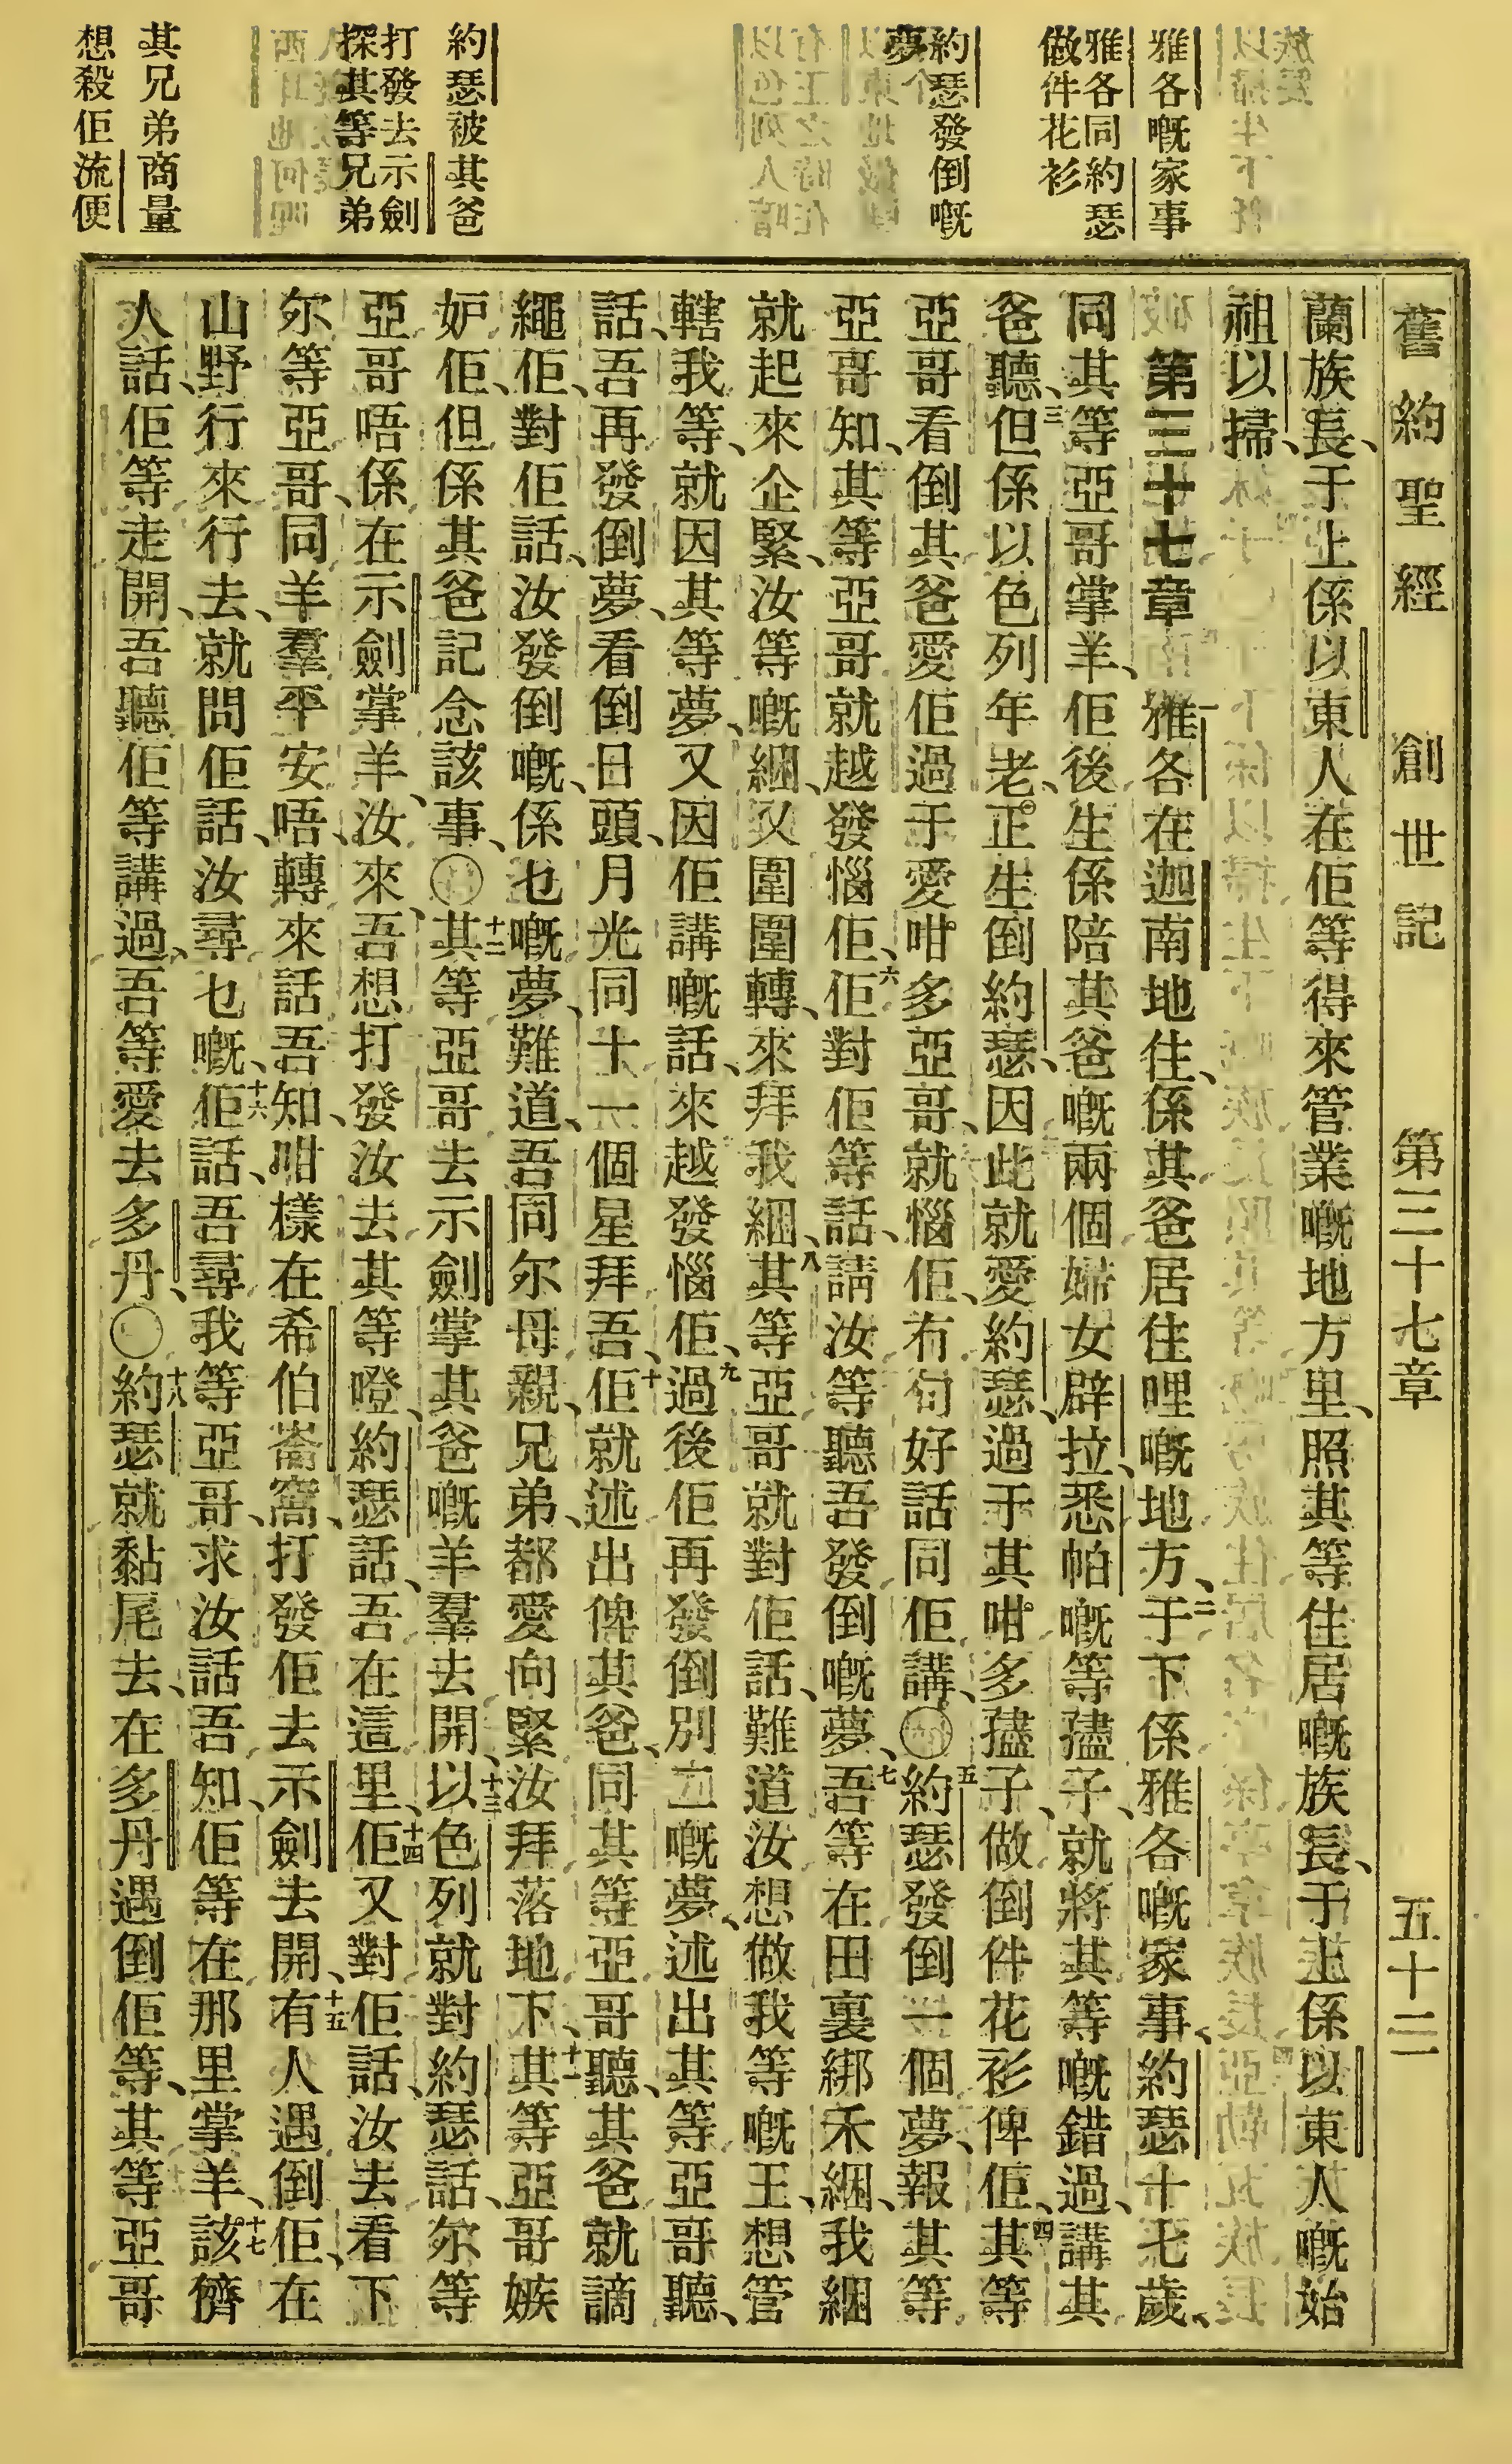 舊約聖經 創世記 第三十七章 五十二
雅各嘅家事
雅各同約瑟
做件花衫
約瑟發倒嘅
夢
約瑟被其爸
打發去示劍
探其等兄弟
其兄弟商量
想殺佢流便
蘭族長、于上係以東人在佢等得來管業嘅地方里、照其等住居嘅族長、于上係以東人嘅始
祖以掃、
第三十七章 一雅各在迦南地住、係其爸居住哩嘅地方、二于下係雅各嘅家事、約瑟十七歲、
同其等亞哥掌羊、佢後生係陪其爸嘅兩個婦女辟拉、悉帕嘅等孻子、就將其等嘅錯過、講其
爸聽、三但係以色列年老、正生倒約瑟、因此就愛約瑟、過于其咁多孻子、做倒件花衫俾佢、四其等
亞哥看倒其爸愛佢過于愛咁多亞哥、就惱佢、冇句好話同佢講、〇五約瑟發倒一個夢、報其等
亞哥知、其等亞哥就越發惱佢、六佢對佢等話、請汝等聽吾發倒嘅夢、七吾等在田裏綁禾綑、我綑
就起來企緊、汝等嘅綑、又圍圍轉、來拜我綑、八其等亞哥就對佢話、難道汝想做我等嘅王、想管
轄我等、就因其等夢、又因佢講嘅話、來越發惱佢、九過後佢再發倒別二嘅夢、述出其等亞哥聽、
話、吾再發倒夢、看倒日頭、月光同十一個星拜吾、十佢就述出俾其爸、同其等亞哥聽、其爸就謫
繩佢、對佢話、汝發倒嘅、係乜嘅夢、難道、吾同尔母親、兄弟、都愛向緊汝拜落地下、十一其等亞哥嫉
妒佢、但係其爸記念該事、〇十二其等亞哥去示劍掌其爸嘅羊羣去開、十三以色列就對約瑟話、尔等
亞哥唔係在示劍掌羊、汝來、吾想打發汝去其等噔、約瑟話、吾在這里、十四佢又對佢話、汝去看下
尔等亞哥、同羊羣平安唔、轉來話吾知、咁樣在希伯崙窩、打發佢去示劍去開、十五有人遇倒佢、在
山野行來行去、就問佢話、汝尋乜嘅、十六佢話、吾尋我等亞哥、求汝話吾知、佢等在那里掌羊、十七該儕
人話、佢等走開、吾聽佢等講過、吾等愛去多丹、〇十八約瑟就黏尾去、在多丹遇倒佢等、其等亞哥